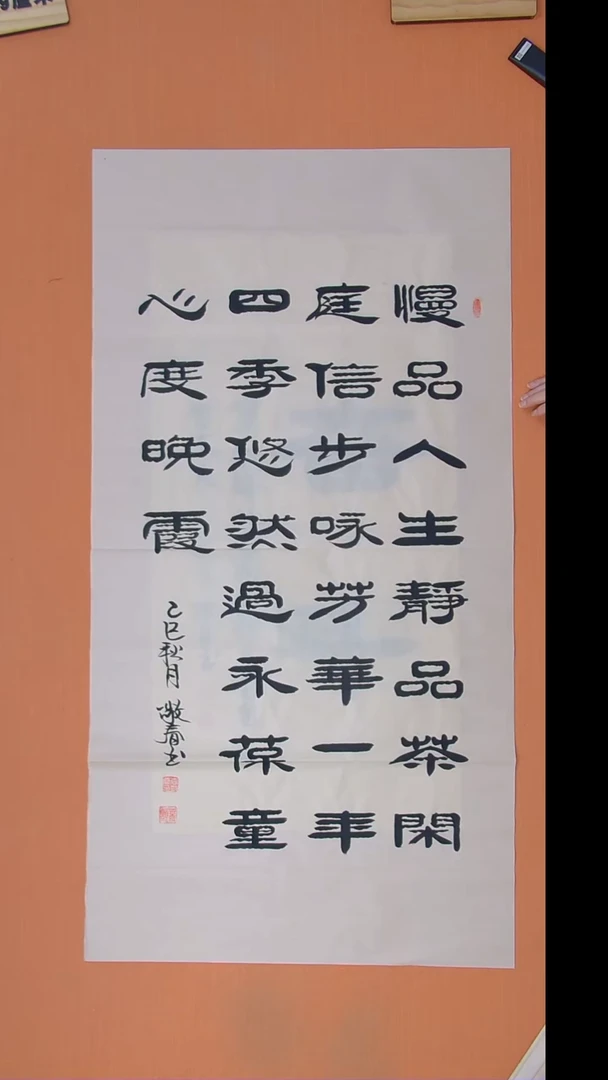 慢品人生靜品茶閑
庭信步咏芳華一年
四季悠然過永葆童
心度晚霞
乙巳秋月 敬春书